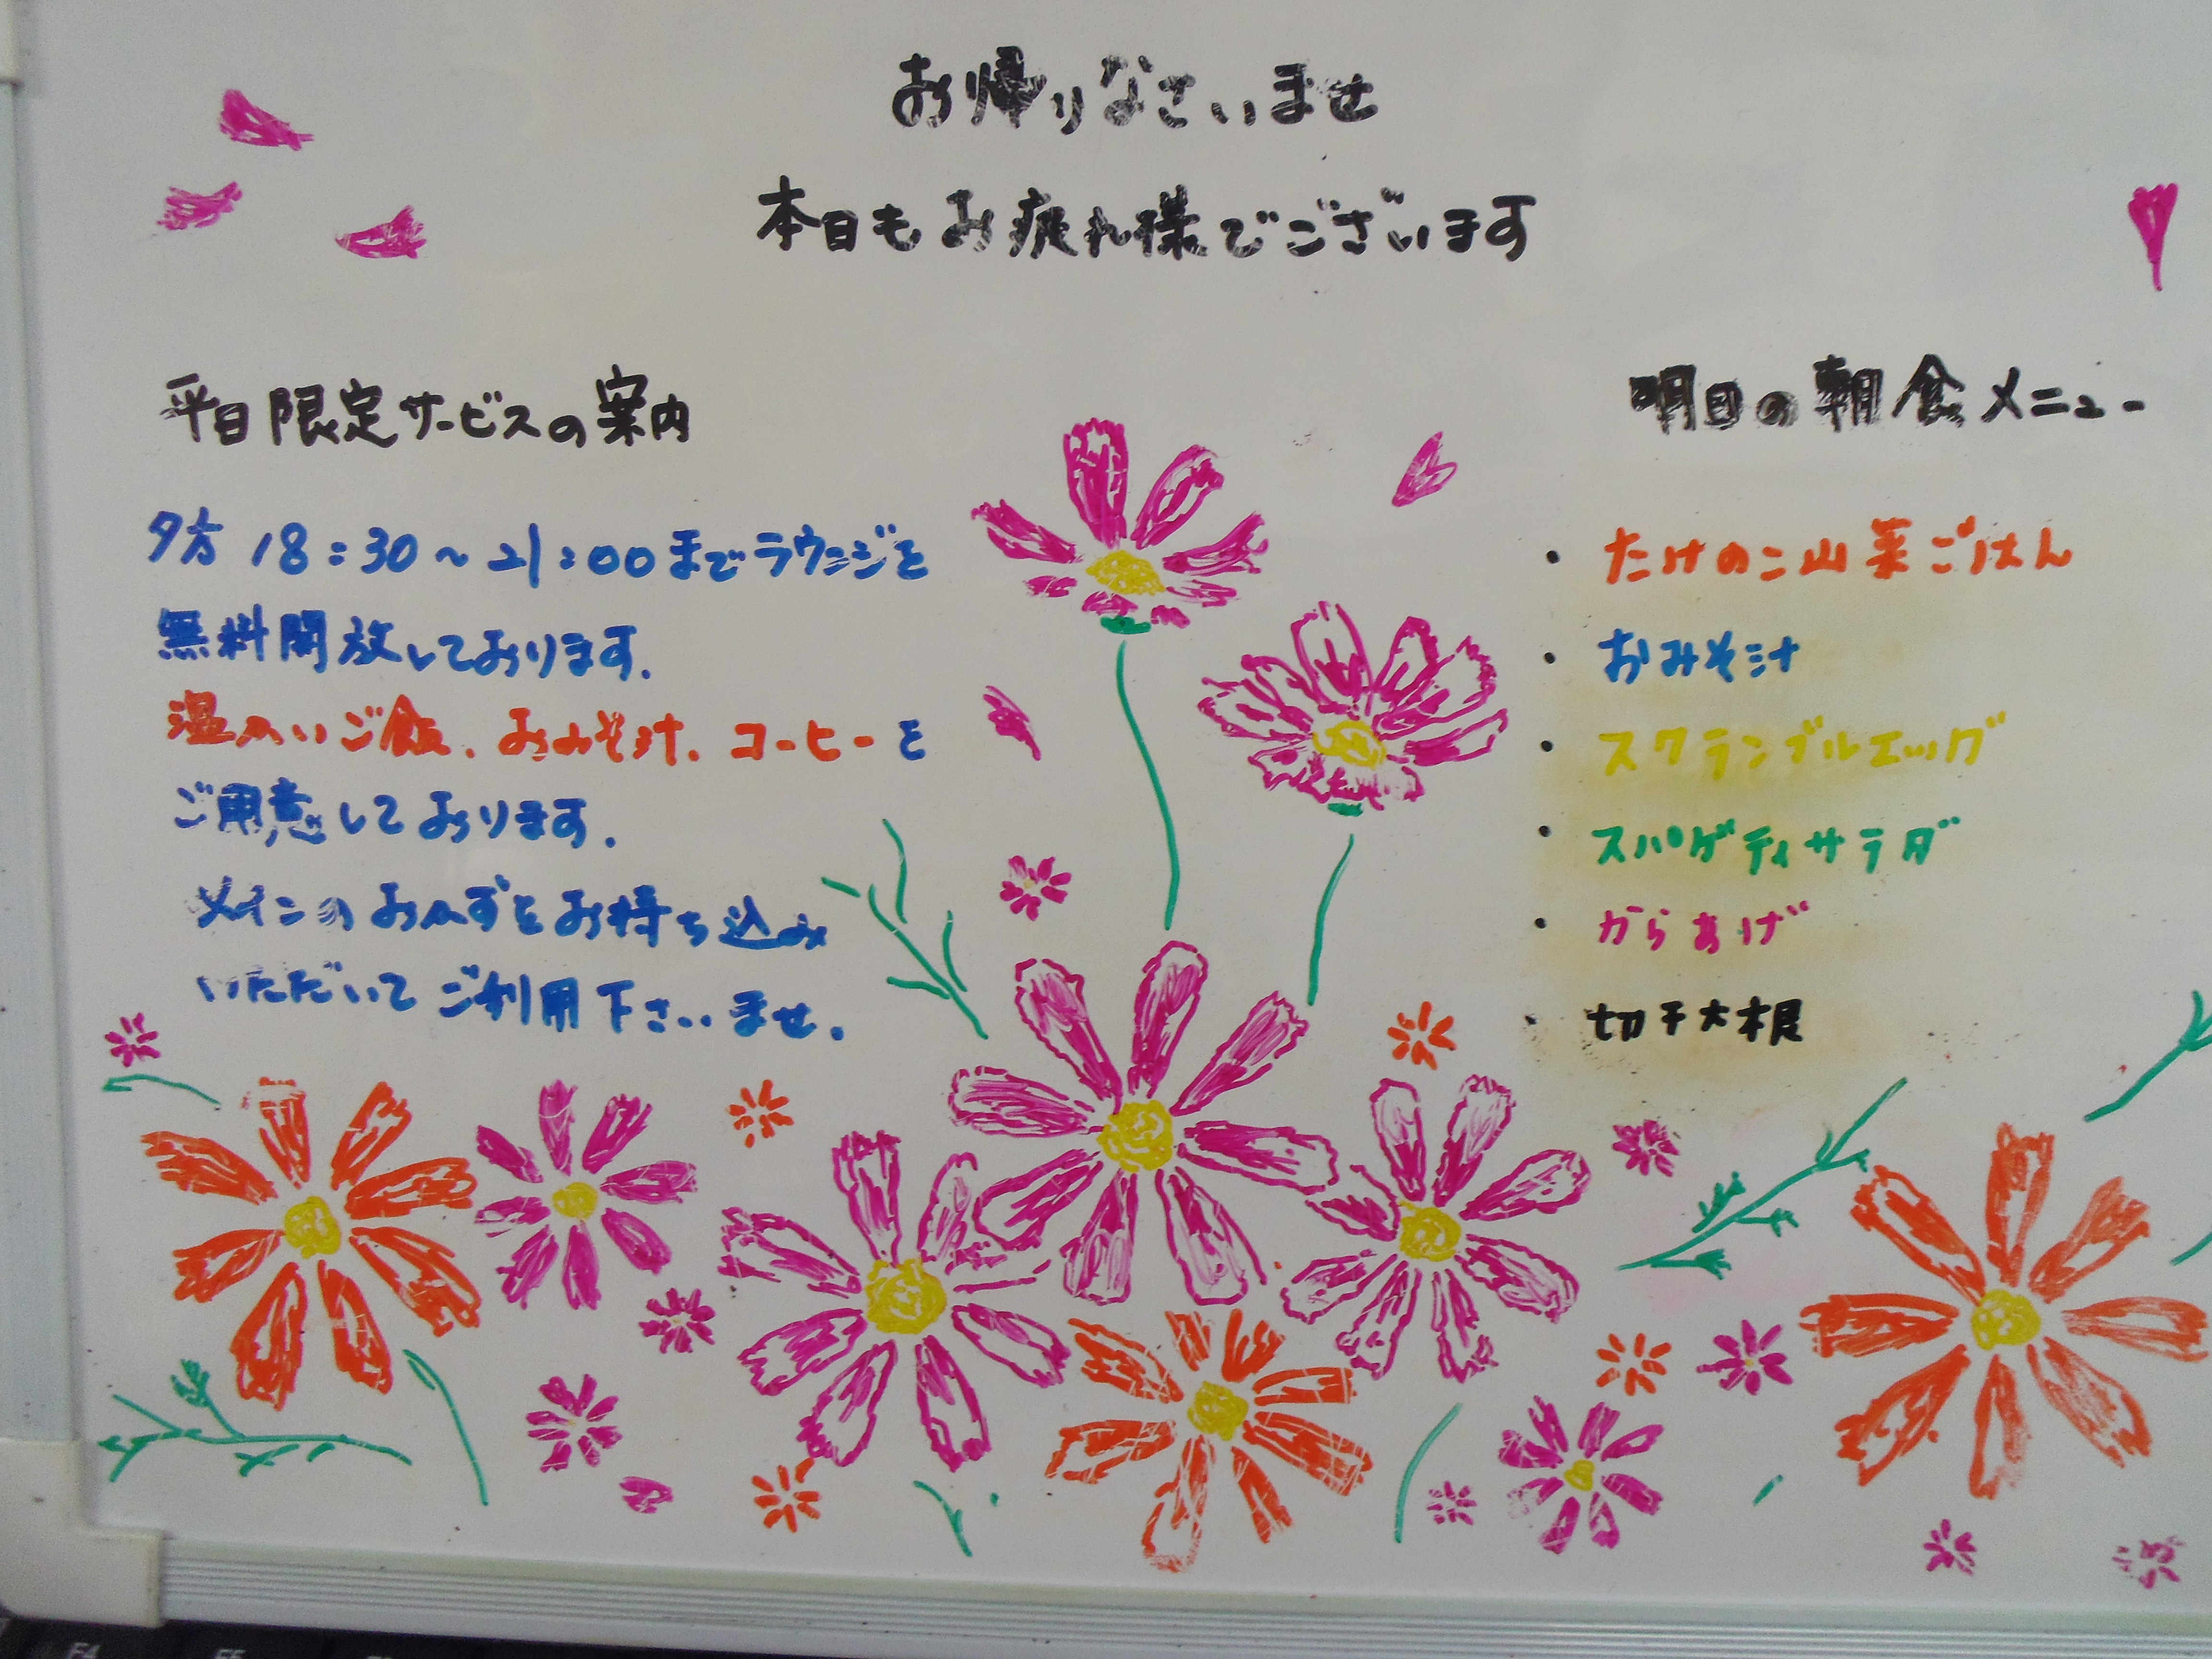 お帰りなさいませ
本日もお疲れ様でございます
平日限定サービスの案内
夕方 18:30～21:00までラウンジを
無料開放しております.
温かいご飯、おみそ汁、コーヒーを
ご用意しております.
メインのおかずをお持ち込み
いただいてご利用下さいませ.
明日の朝食メニュー
・たけのこ山菜ごはん
・おみそ汁
・スクランブルエッグ
・スパゲティサラダ
・からあげ
・切干大根
F4
F5